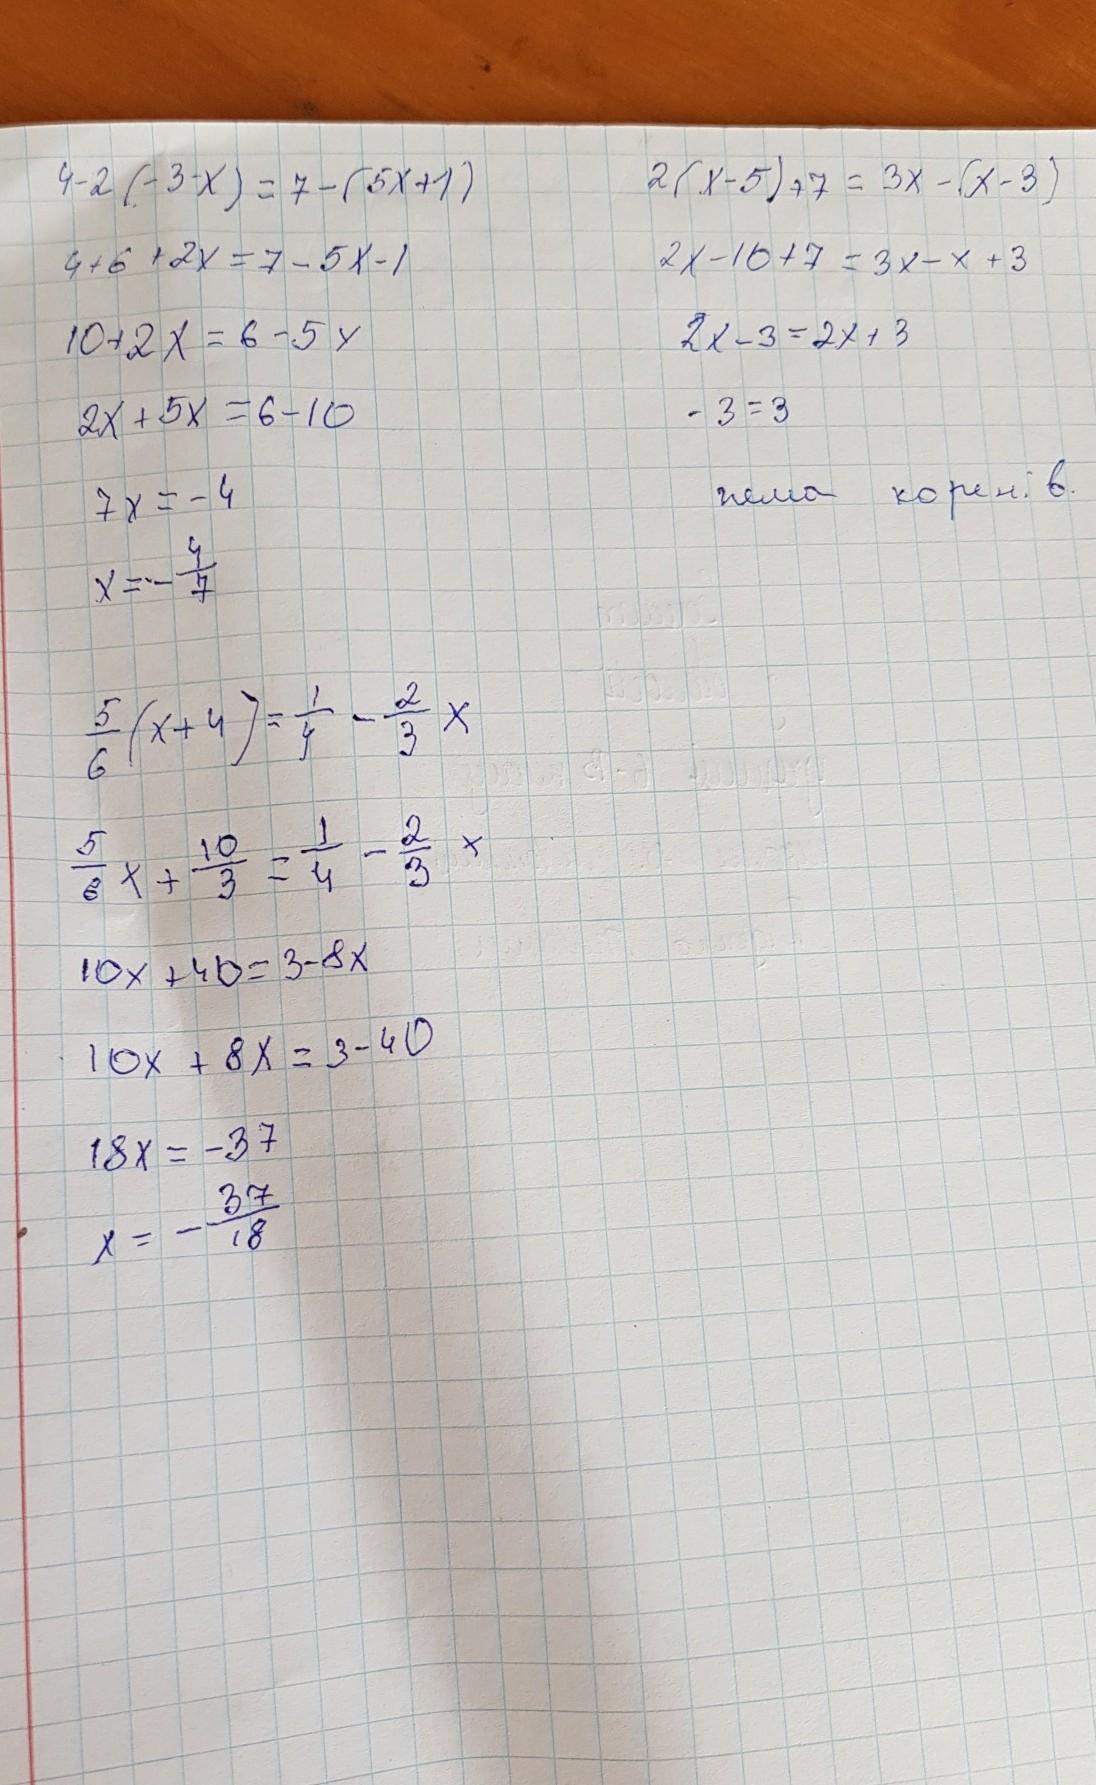 4-2(-3-x)=7-(5x+1)
4+6+2x=7-5x-1
10+2x=6-5x
2x+5x=6-10
7x=-4
x=-4/7
2(x-5)+7=3x-(x-3)
2x-10+7=3x-x+3
2x-3=2x+3
-3=3
нема коренів.
5/6(x+4)=1/4-2/3x
5/6x+10/3=1/4-2/3x
10x+40=3-8x
10x+8x=3-40
18x=-37
x=-37/18